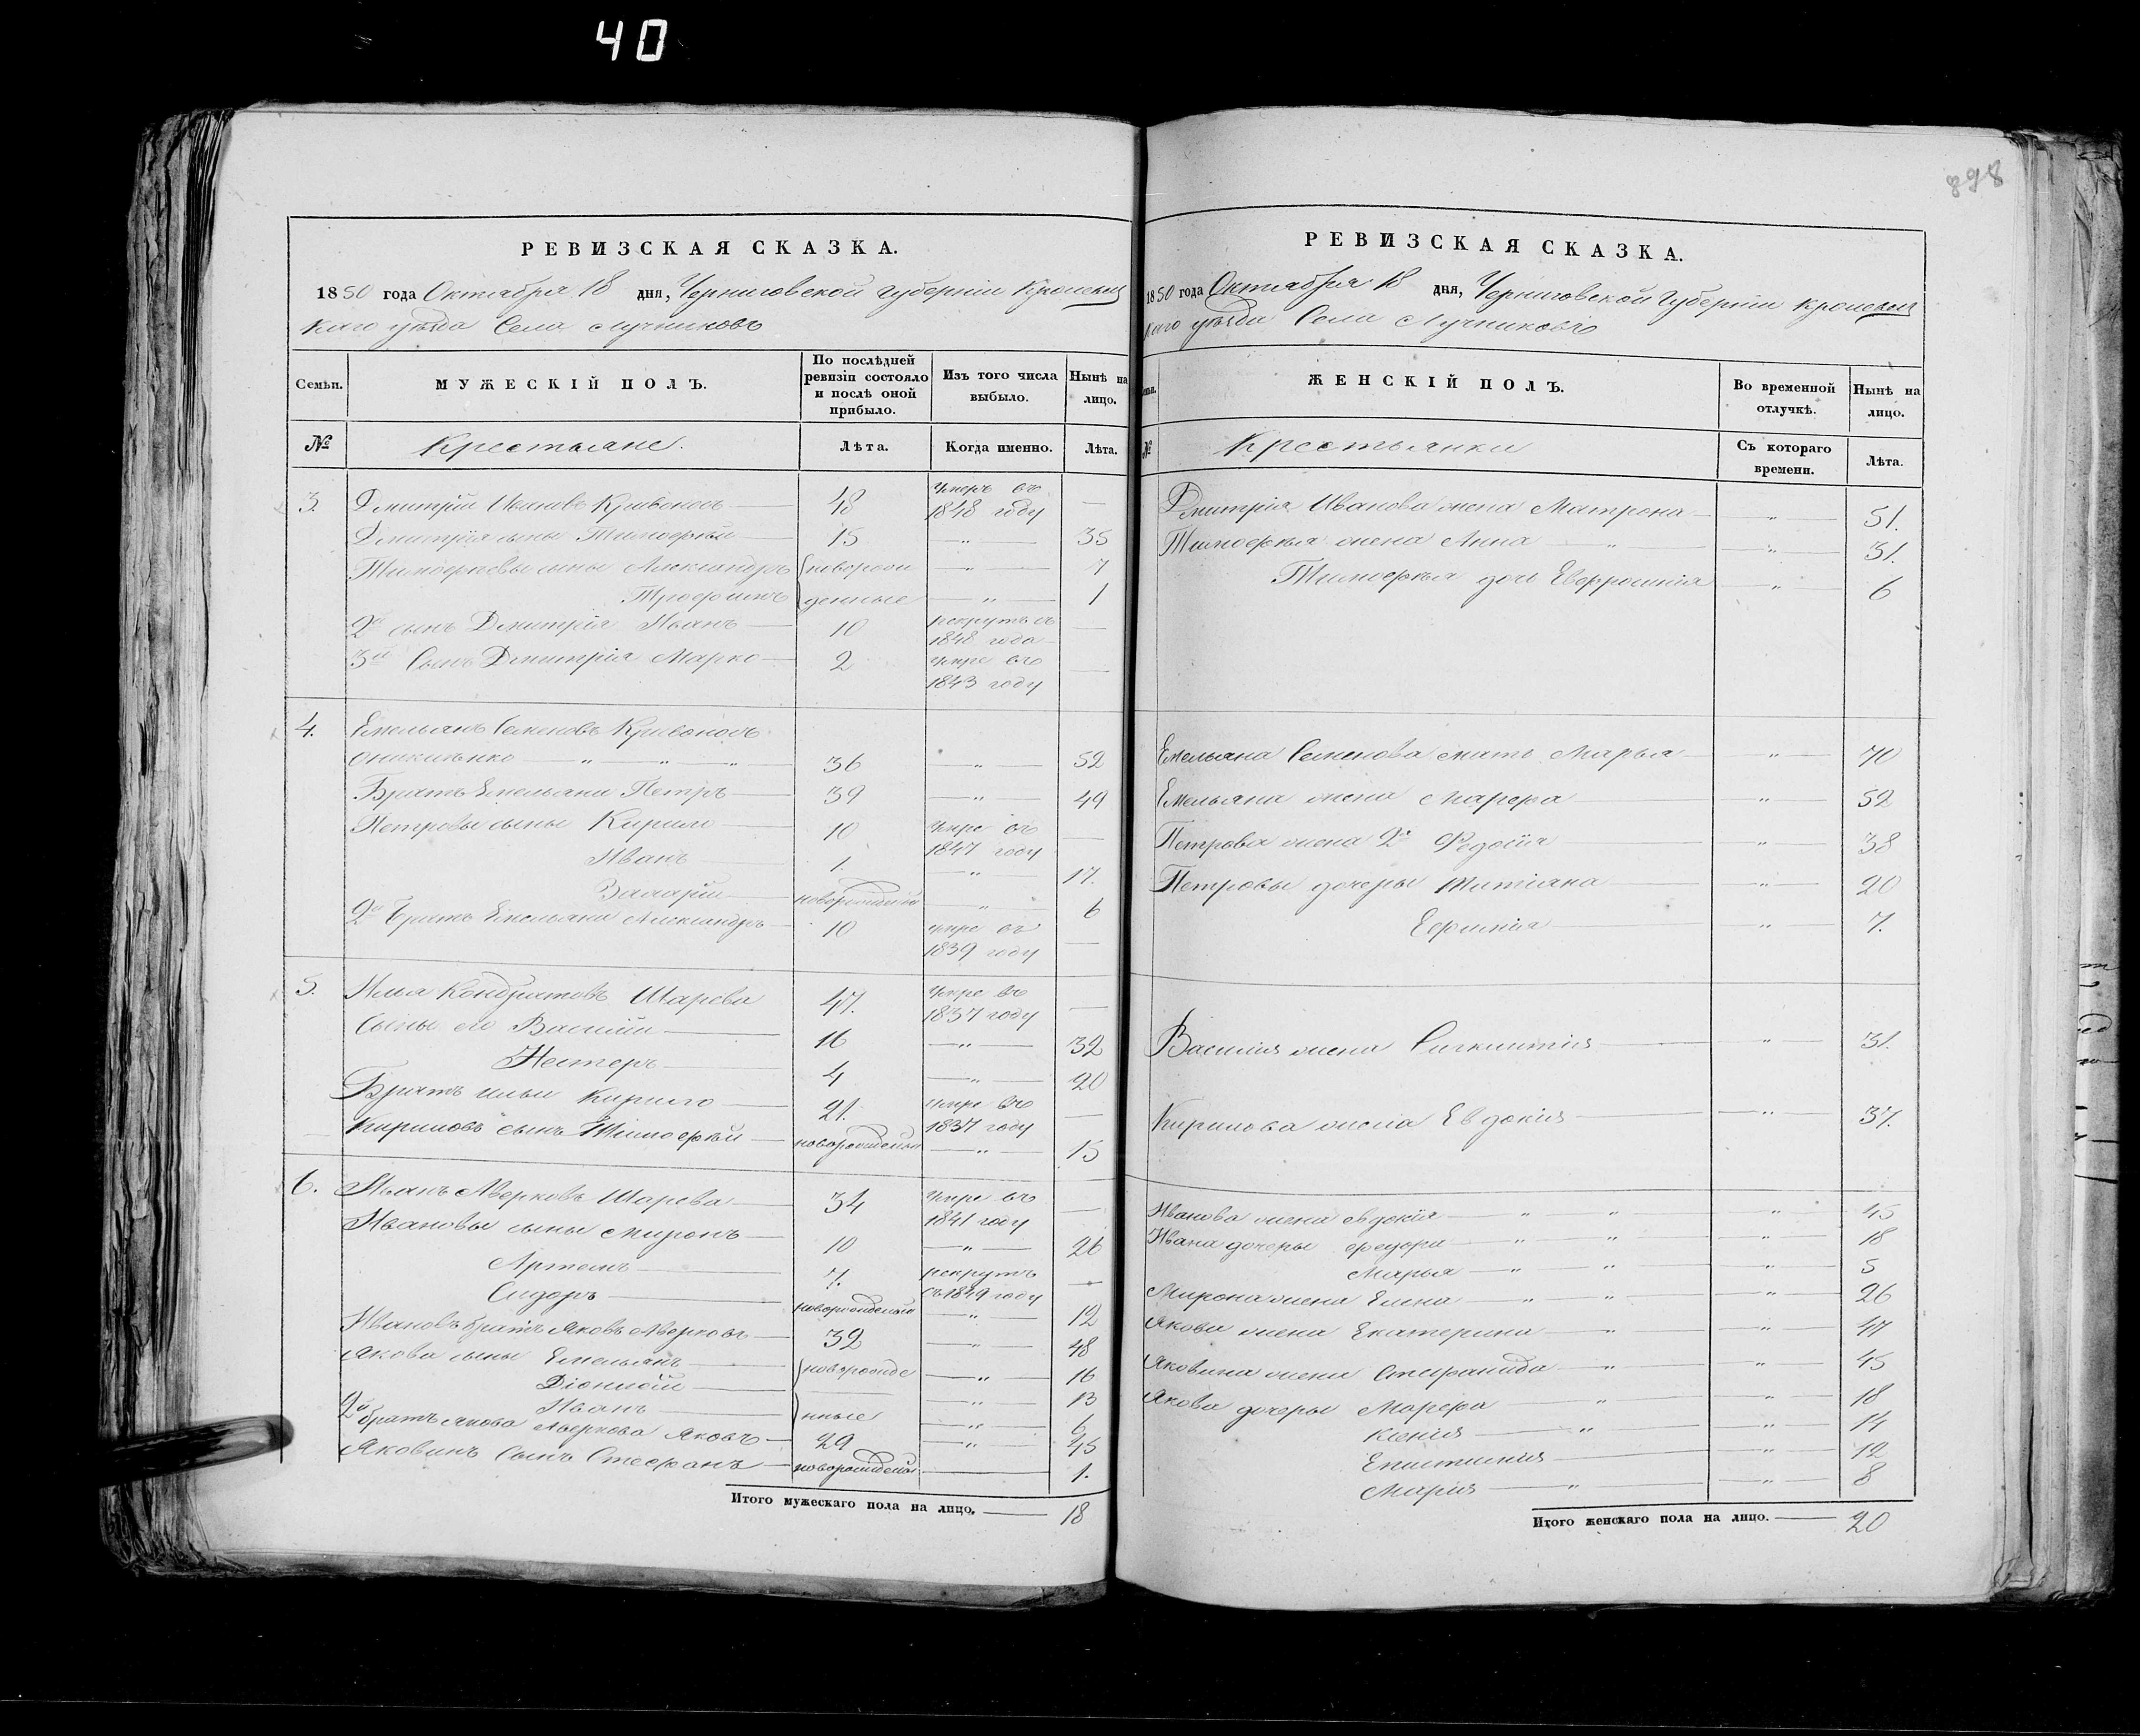 40
898
РЕВИЗСКАЯ СКАЗКА.
1850 года Октября 18 дня, Черниговской губерніи Кролевец
каго уѣзда Села Лучниковъ
Семьи.
МУЖЕСКІЙ ПОЛЪ.
По послѣдней ревизіи состояло и послѣ оной прибыло.
Изъ того числа выбыло.
Нынѣ на лицо.
№
Крестьяне.
Лѣта.
Когда именно.
Лѣта.
3. Дмитрій Ивановъ Кривоносъ 48 умеръ въ 1848 году —
Дмитрія сынъ Тимофѣй 15 — " — 35
Тимофеевы сыны Александръ новорож — " — 7
Трофимъ денные — " — 1
2й сынъ Дмитрія Иванъ 10 рекрутъ съ 1848 года —
3й Сынъ Дмитрія Марко 2 умре въ 1843 году —
4. Емельянъ Семеновъ Кривоносъ
Оникиенко — " — " — " 36 — " — 52
Братъ Емельяна Петръ 39 — " — 49
Петровы сыны Кирило 10 умре въ 1847 году —
Иванъ 1. — " — 17.
Захарій новорожденый — " — 6
2й братъ Емельяна Александръ 10 умре въ 1839 году —
5. Илья Кондратовъ Шарева 47. умре въ 1837 году —
Сыны его Василій 16 — " — 32
Нестеръ 4 — " — 20
Братъ Ильи Кирило 21. умре въ 1837 году —
Кириловъ сынъ Тимофѣй новорожденый — " — 15
6. Иванъ Аверковъ Шарева 34 умре въ 1841 году —
Ивановы сыны Миронъ 10 — " — 26
Артемъ 7. рекрутъ съ 1849 году —
Сидоръ новорожденый — " — 12
Ивановъ братъ Яковъ Аверковъ 32 — " — 48
Якова сыны Емельянъ новорожде — " — 16
Діонисій — " — 13
Иванъ нные — " — 6
2й братъ Якова Аверкова Яковъ 29 — " — 45
Яковинъ Сынъ Стефанъ новорожденый — 1.
Итого мужескаго пола на лицо. — 18
РЕВИЗСКАЯ СКАЗКА.
1850 года Октября 18 дня, Черниговской Губерніи Кролевец
каго уѣзда Села Лучниковъ
ЖЕНСКІЙ ПОЛЪ.
Во временной отлучкѣ.
Нынѣ на лицо.
№
Крестьянки
Съ котораго времени.
Лѣта.
Дмитрія Иванова жена Матрона — " — 51.
Тимофея жена Анна — " — " — 31.
Тимофея дочь Евфросинія — " — 6
Емельяна Семенова мать Марья — " — 70
Емельяна жена Марфа — " — 52
Петрова жена 2я Федосія — " — 38
Петровы дочеры Татіана — " — 20
Ефимія — " — 7.
Василія жена — " — 31.
Кирилова жена Евдокія — " — 37.
Иванова жена Евдокія — " — " — " — 45
Ивана дочеры Федора — " — " — " — 18
Марья — " — " — " — 5
Мирона жена Елена — " — " — " — 26
Якова жена Екатерина — " — " — 47
Яковина жена Стефанида — " — " — 45
Якова дочеры Марфа — " — " — 18
Ксенія — " — " — 14
Епистимія — " — 12
Марія — " — " — 8
Итого женскаго пола на лицо. — 20